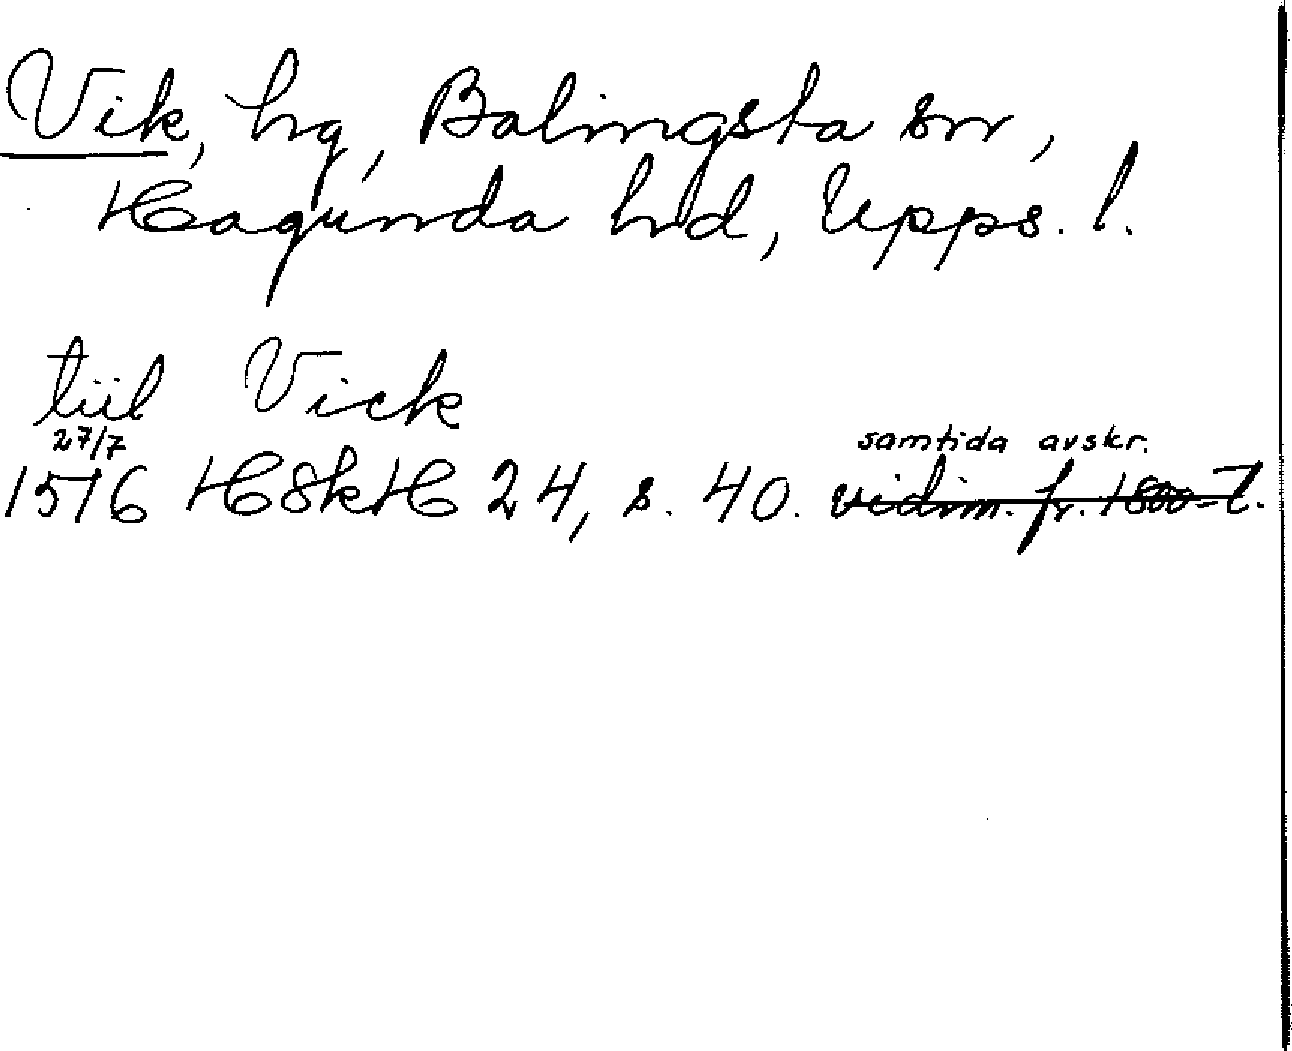 Vik, hg, Balingsta sn,
Hagunda hd, Upps. l.
tiil Vick
27/7 samtida avskr.
1516 HSkH 24, s. 40. vidim. fr. 1800-t.